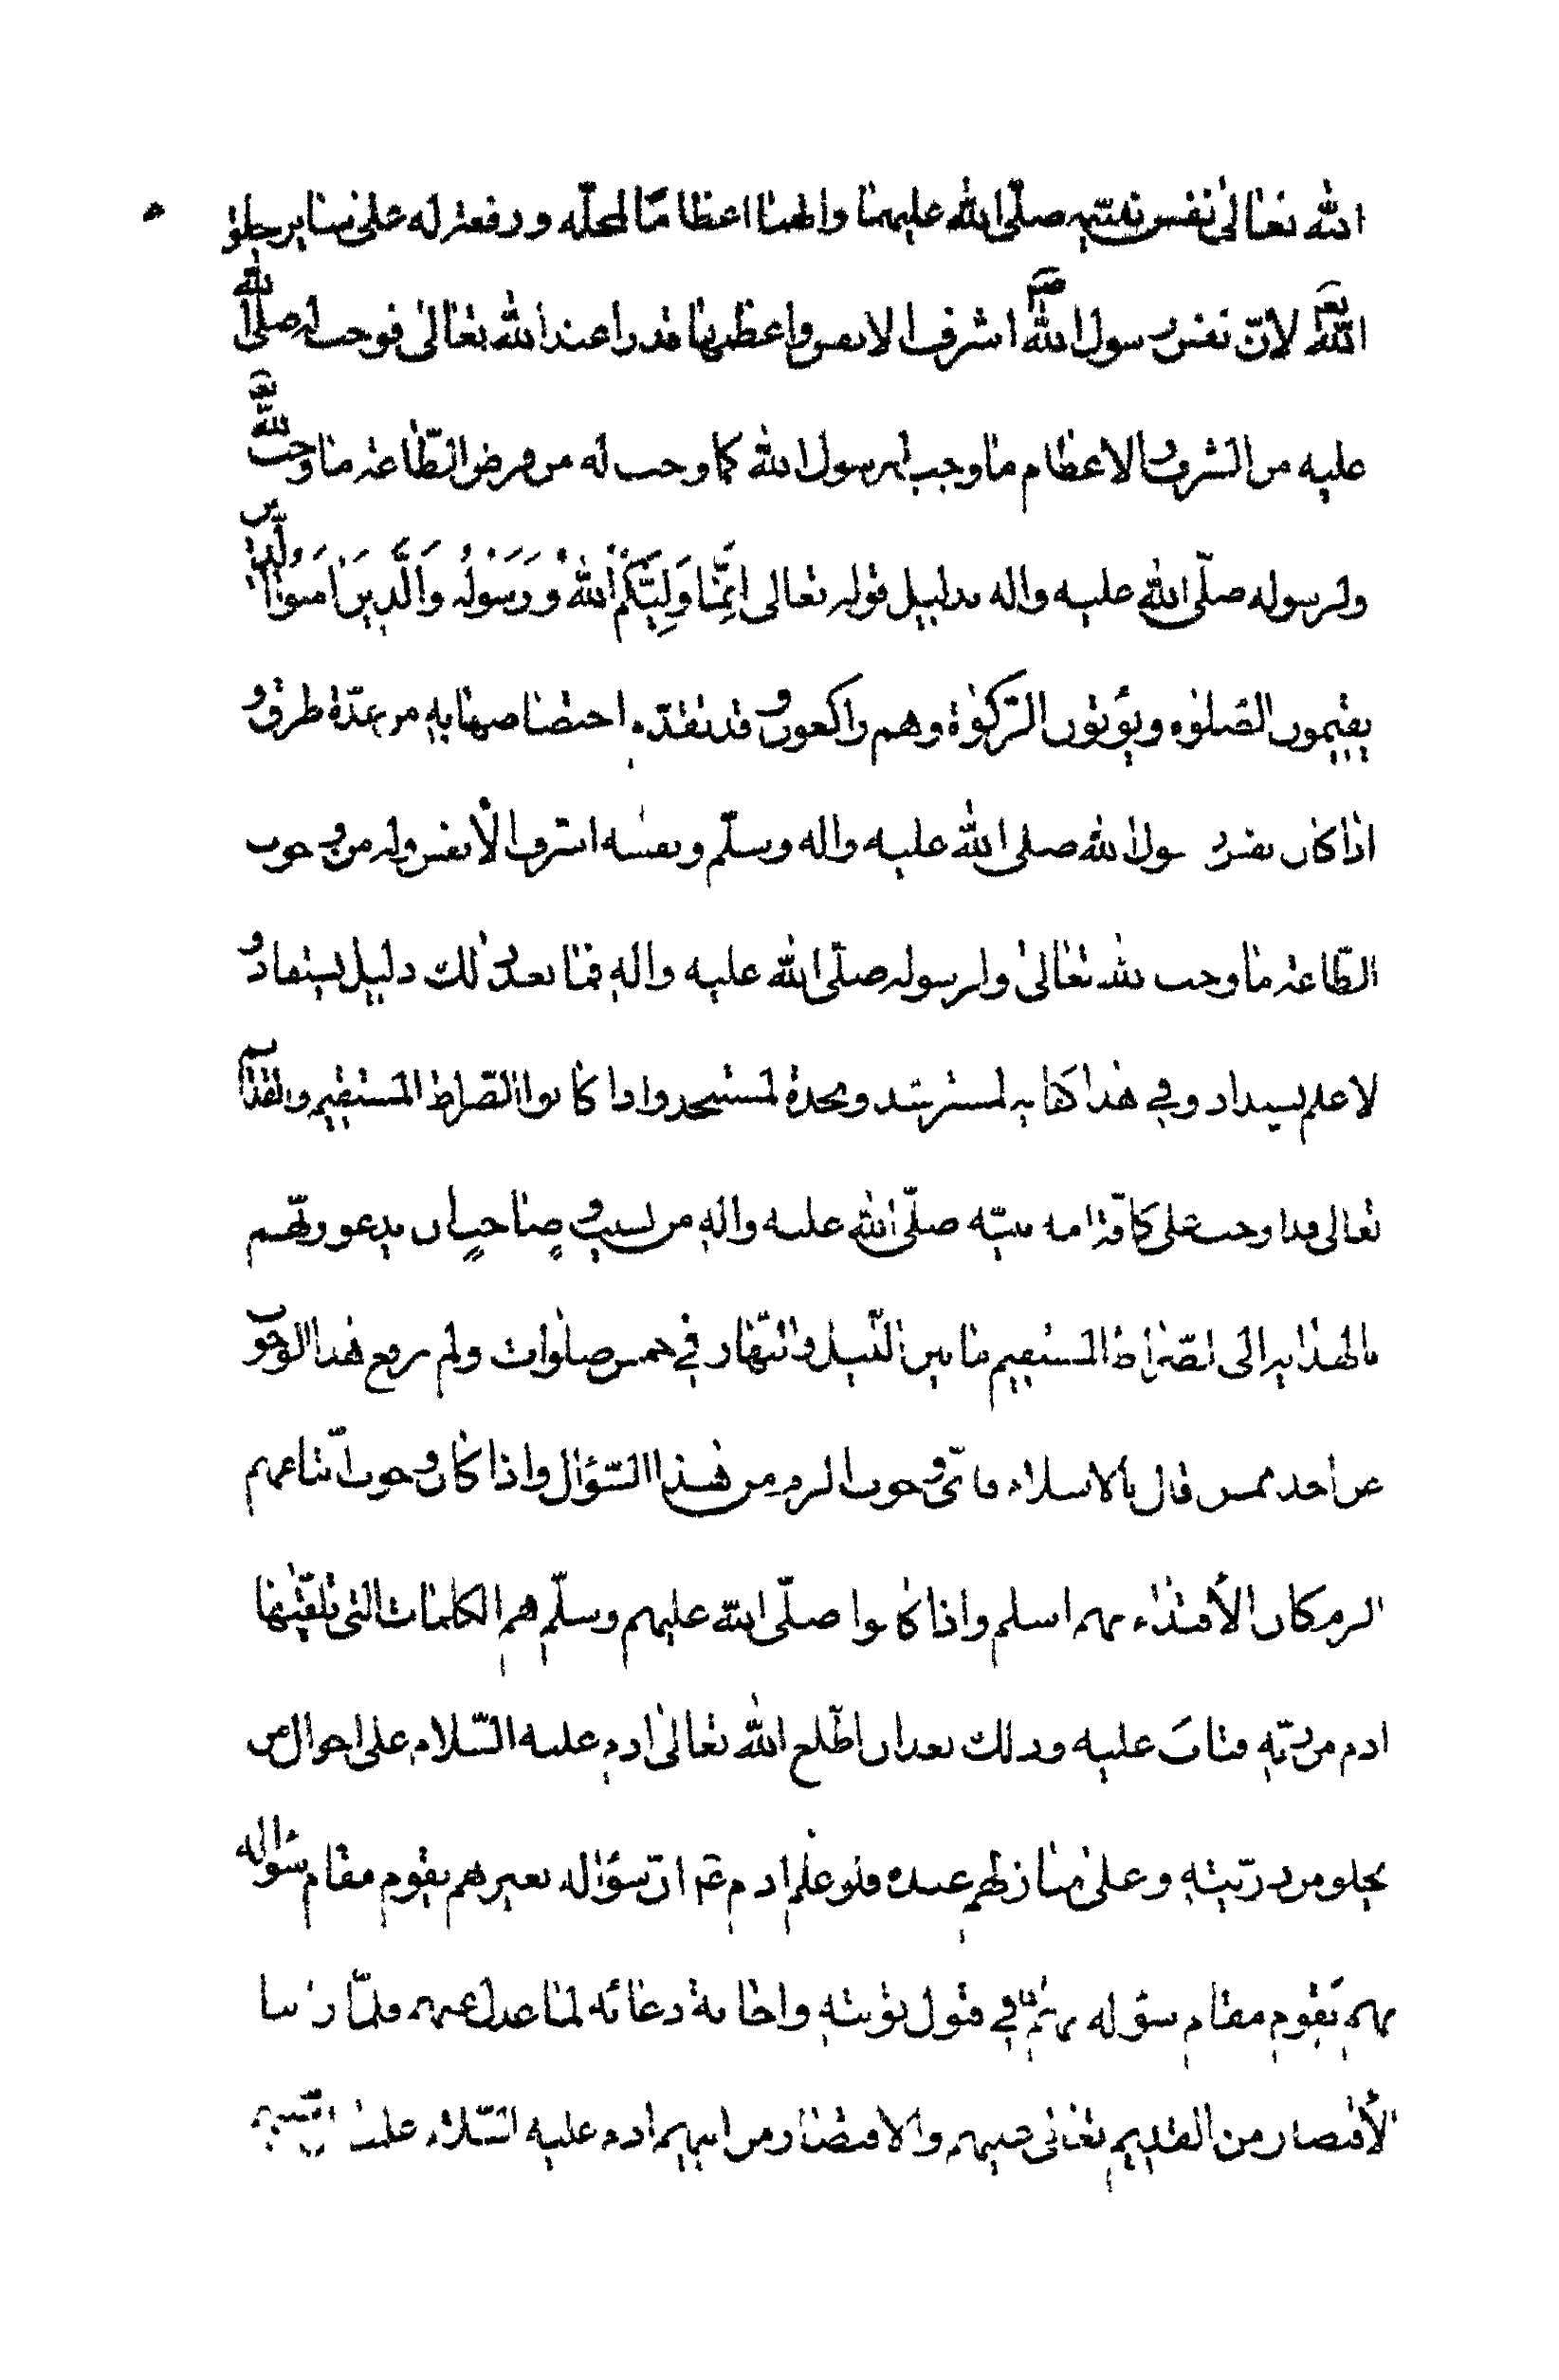 الله تعالى نفس نبيّه صلّى الله عليهما والهما اعظاما لمحلّه ورفعة له على ساير خلق
الله تع لانّ نفس رسول الله ص اشرف الانفس واعظمها قدرا عند الله تعالى فوجب له صلى الله
عليه من الشرف والاعظام ما وجب لرسول الله كما وجب له من فرض الطّاعة ما وجب لله تع
ولرسوله صلّى الله عليه واله بدليل قوله تعالى اِنَّمَا وَلِيُّكُمُ اللهُ وَرَسُولُه وَالَّذِينَ امَنوُا الَّذين
يقيمون الصّلوه ويؤتون الزّكوة وهم راكعون وقد تقدّم اختصاصها به من عدّة طرق و
اذا كان نفس رسول الله صلى الله عليه واله وسلّم ونفسه اشرف الأنفس وله من وجوب
الطّاعة ما وجب لله تعالى ولرسوله صلّى الله عليه واله فما بعد ذلك دليل يستفاد و
لا علم يستزاد وفي هذا كفاية لمسترشد ونجدة لمستنجد واذا كانوا الصّراط المستقيم والقران
تعالى قد اوجب على كافّة امة نبيّه صلّى الله عليه واله من نسيب وصاحب ان يدعو ربّهم
بالهداية الى الصّراط المستقيم ما بين اللّيل والنّهار في خمس صلوات ولم يرفع هذا الوجوب
عن احد ممن قال بالاسلام فايّ وجوب الزم من هذا السّؤال واذا كان وجوب اتّباعهم
الزم كان الأقتداء بهم اسلم واذا كانوا صلّى الله عليهم وسلّم هم الكلمات التي تلقّيها
ادم من ربّه فتاب عليه وذلك بعد ان اطّلع الله تعالى ادم عليه السّلام على احوال من
يخلق من ذرّيّته وعلى منازلهم عنده فلو علم ادم عم انّ سؤاله بغيرهم يقوم مقام سؤاله
بهم يقوم مقام سؤله بهم في قبول توبته واجابة دعائه لما عدل عنهم فلمّا راينا
الأقتصار من القديم تعالى عليهم والاقتصار من ابيهم ادم عليه السّلام علينا